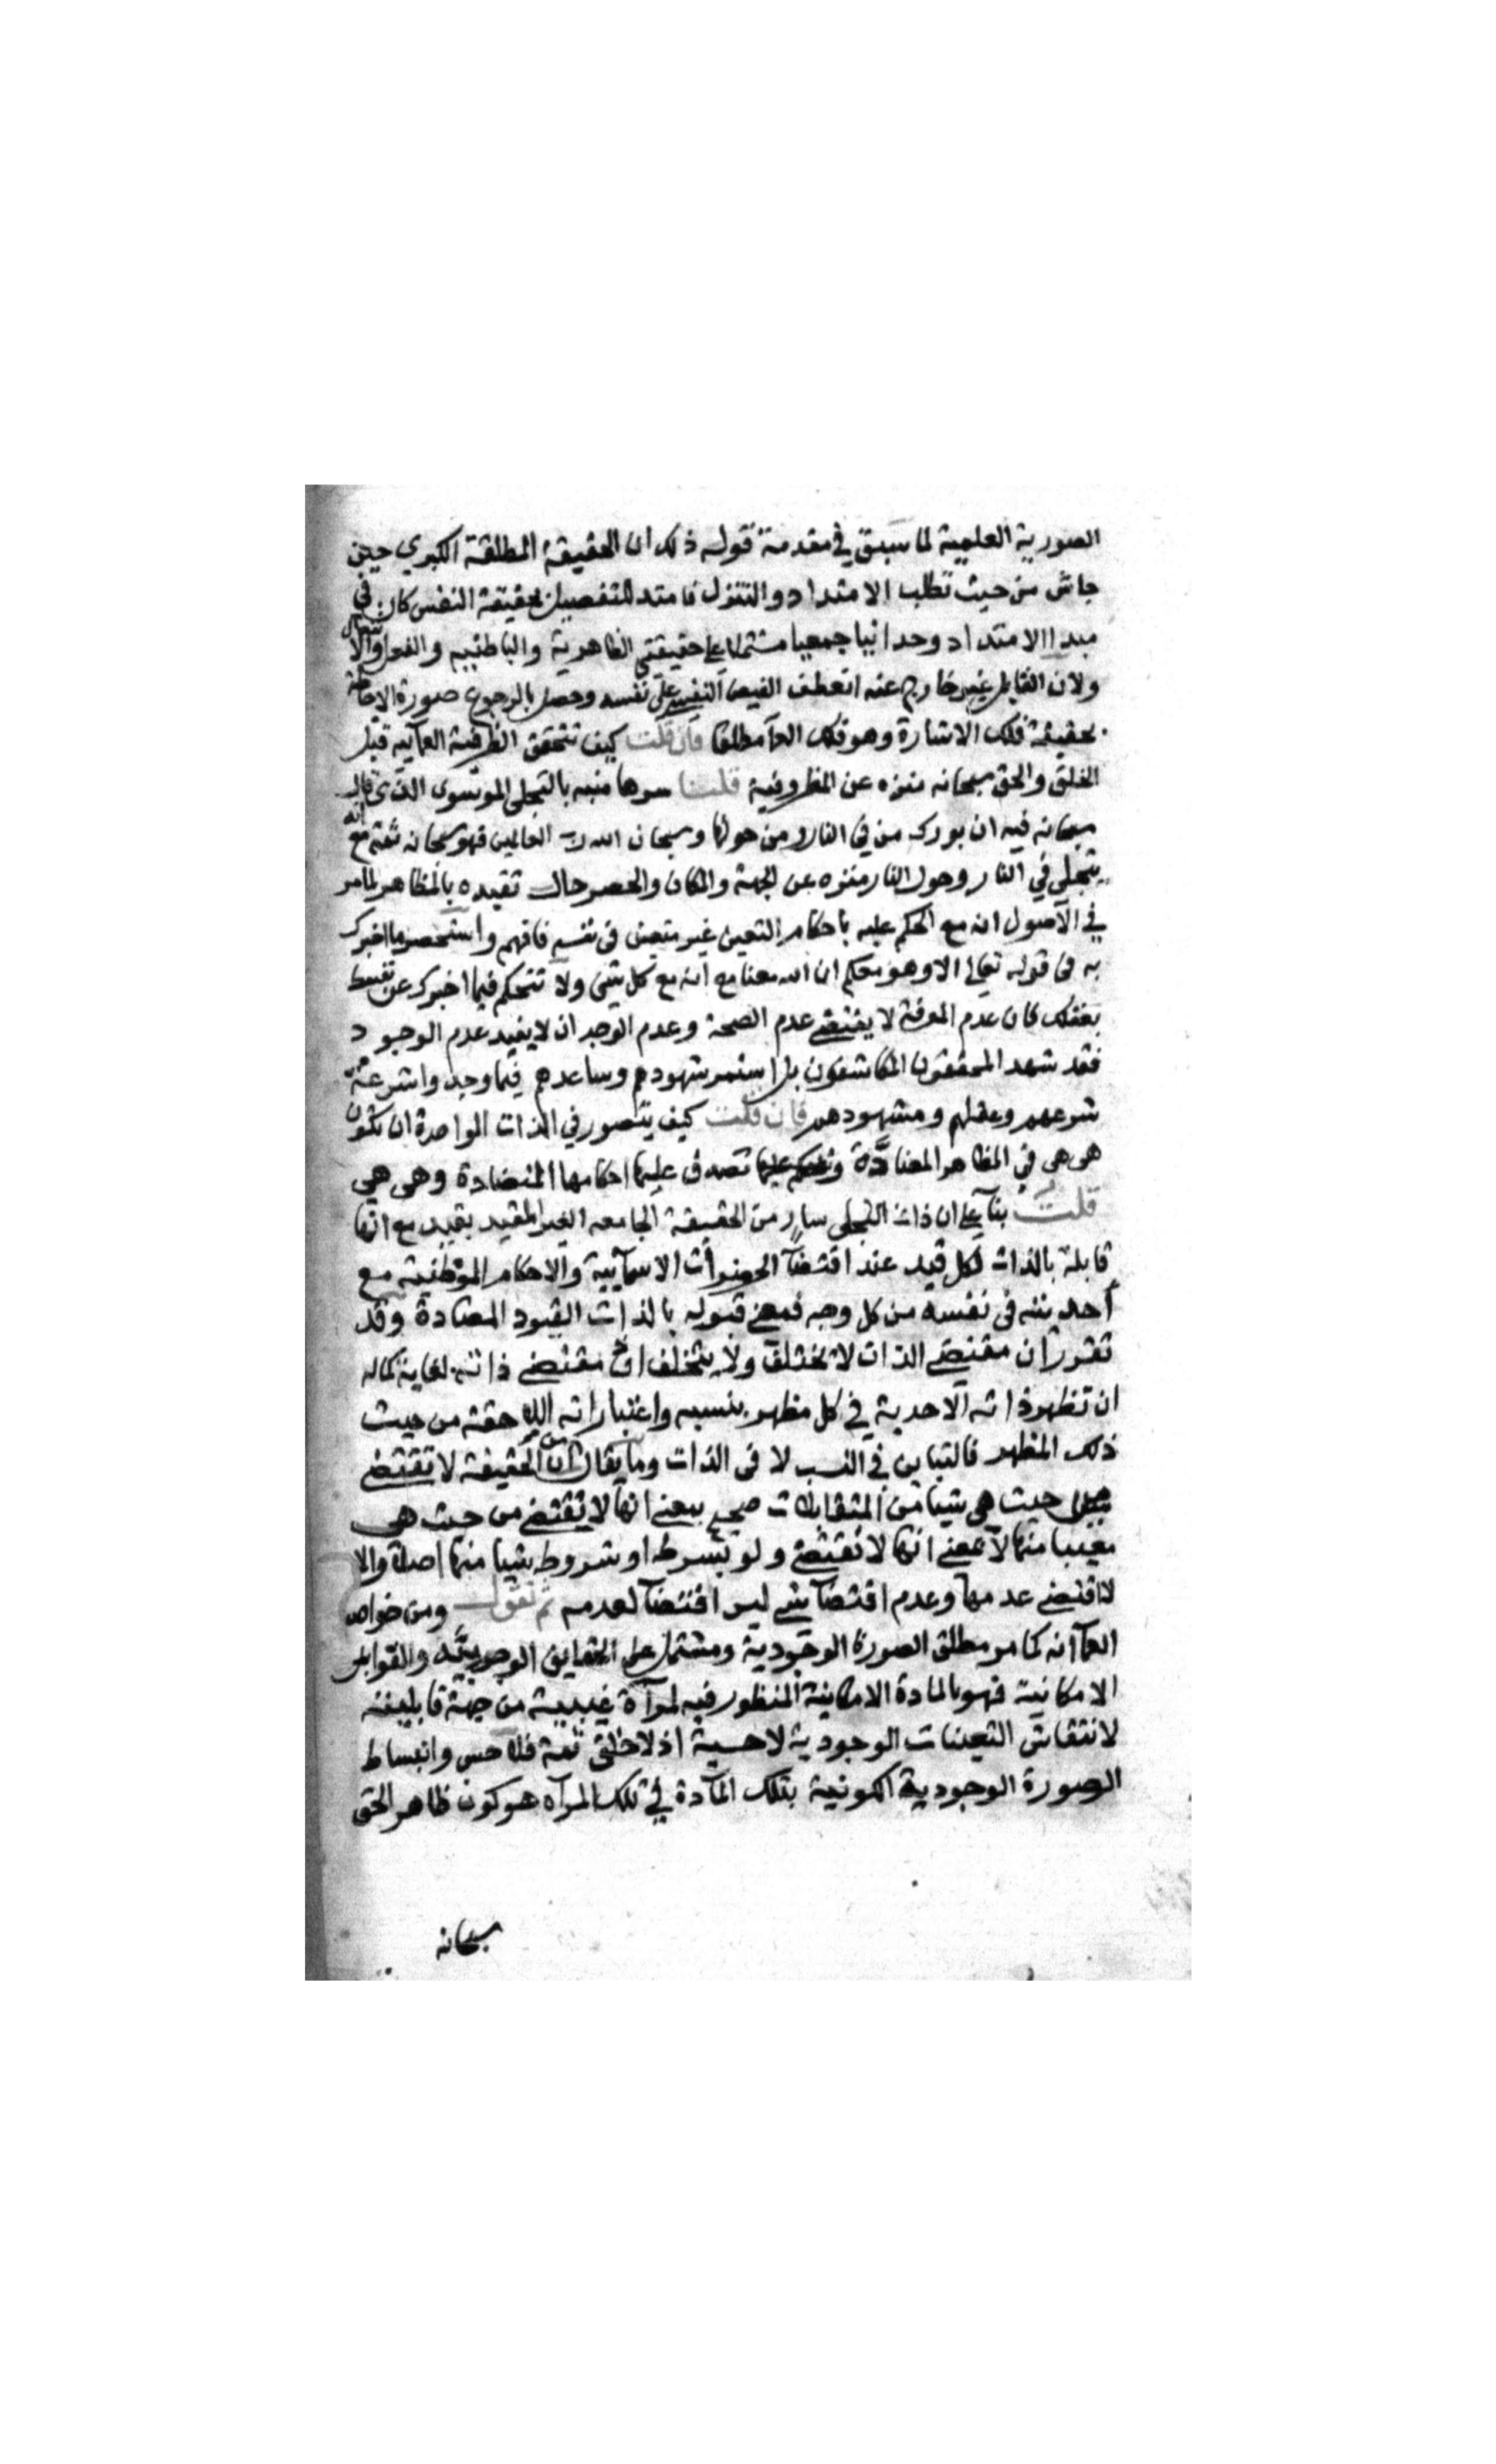 الصورية العلمية لما سبق في مقدمة قوله ذلك ان الحقيقة المطلقة الكبرى حين
جاش من حيث تطلب الامتداد والتنزل فامتد للتفصيل بحقيقة النفس كان في
مبدا الامتداد وحدانيا جمعيا مشتملا على حقيقتي الظاهرية والباطنية والفعل والانفعال
ولان القابل غير خارج عنه انعطف الفيض النفسي على نفسه وحصل بالرجوع صورة الاحاطة
بحقيقة فلك الاشارة وهو فلك العمآ مطلقا فان قلت كيف تتحقق الظرفية العمآيية قبل
الخلق والحق سبحانه منزه عن المظروفية قلنا سرها منبه بالتجلي الموسوى الذى قال
سبحانه فيه ان بورك من في النار ومن حولها وسبحان الله رب العالمين فهو سبحانه ثمة مع انه
يتجلى في النار وحول النار منزه عن الجهة والمكان والحصر حال تقيده بالمظاهر لما مر
في الاصول انه مع الحكم عليه باحكام التعين غير متعين فى نفسه فافهم واستحضر ما اخبرك
به فى قوله تعالى الا وهو معكم ان الله معنا مع انه مع كل شئ ولا تتحكم فيما اخبرك عن نفسه
بعقلك فان عدم المعرفة لا يقتضي عدم الصحة وعدم الوجدان لا يفيد عدم الوجود
فقد شهد المحققون المكاشفون بل استمر شهودهم وساعدهم فيما وجدوا شرعة
شرعهم وعقلهم ومشهودهم فان قلت كيف يتصور في الذات الواحدة ان تكون
هى هى في المظاهر المعتادة تصدق عليها احكامها المتضادة وهى هى
قلت بنآ على ان ذات التجلى سار من الحقيقة الجامعه الغير المقيد بقيد مع انها
قابلة بالذات لكل قيد عند اقتضآ الحضرات الاسمآيية والاحكام الموطنية مع
أحديته فى نفسه من كل وجه فمعنى قبوله بالذات القيود المضادة وقد
تقرر ان مقتضي الذات لا تختلف ولا يتخلف اذ مقتضي ذاته لغاية كماله
ان تظهر ذاته الاحدية في كل مظهر بنسبه واعتباراته اللاحقة من حيث
ذلك المظهر فالتباين في النسب لا فى الذات وما يقال من ان الحقيقة لا تقتضي
من حيث هي شيئا من المتقابلات صحيح بمعنى انها لا تقتضى من حيث هى
معينا منها لا بمعنى انها لا تقتضي ولو بشرط او شروط شيئا منها اصلا والا
لاقتضي عدمها وعدم اقتضآ شي ليس اقتضآ لعدمه ثم نقول ومن خواص
العمآ انه كما مر مطلق الصورة الوجودية ومشتمل على الحقايق الوجوبية والقوابل
الامكانية فهو بالمادة الامكانية المنظور فيه لمرآة غيبية من جهة قابليته
لانتقاش التعينات الوجودية لا حسية اذ لا خلق ثمة فلا حس وانبساط
الصورة الوجودية الكونية بتلك المآدة في تلك المرآه هو كون ظاهر الحق
سبحانه